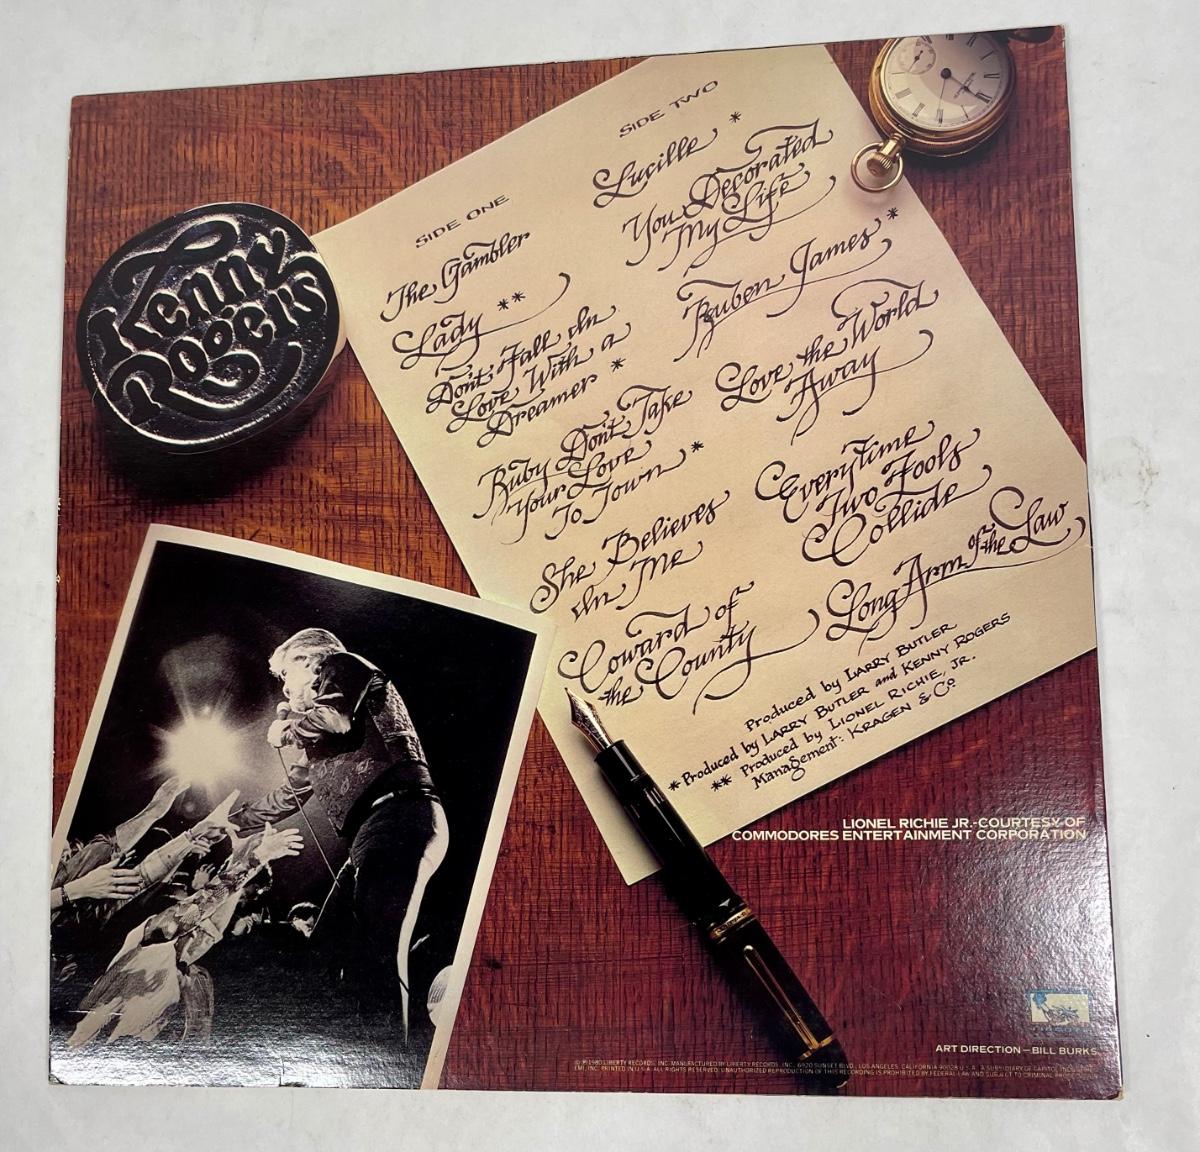 Kenny
Rogers
SIDE ONE
The Gambler
Lady **
Don't Fall In
Love With a
Dreamer *
Ruby Don't Take
Your Love
To Town *
She Believes
In Me
Coward of
the County
SIDE TWO
Lucille *
You Decorated
My Life
Reuben James *
Love the World
Away
Everytime
Two Fools
Collide
Long Arm of the Law
Produced by LARRY BUTLER
*Produced by LARRY BUTLER and KENNY ROGERS
** Produced by LIONEL RICHIE, JR.
Management: KRAGEN & Co
LIONEL RICHIE JR.-COURTESY OF
COMMODORES ENTERTAINMENT CORPORATION
ART DIRECTION—BILL BURKS
1980 LIBERTY RECORDS, INC. MANUFACTURED BY LIBERTY RECORDS, INC., 6920 SUNSET BLVD., LOS ANGELES, CALIFORNIA 90028 U.S.A. A SUBSIDIARY OF CAPITOL
EMI, INC. PRINTED IN U.S.A. ALL RIGHTS RESERVED. UNAUTHORIZED REPRODUCTION OF THIS RECORDING IS PROHIBITED BY FEDERAL LAW AND SUBJECT TO CRIMINAL